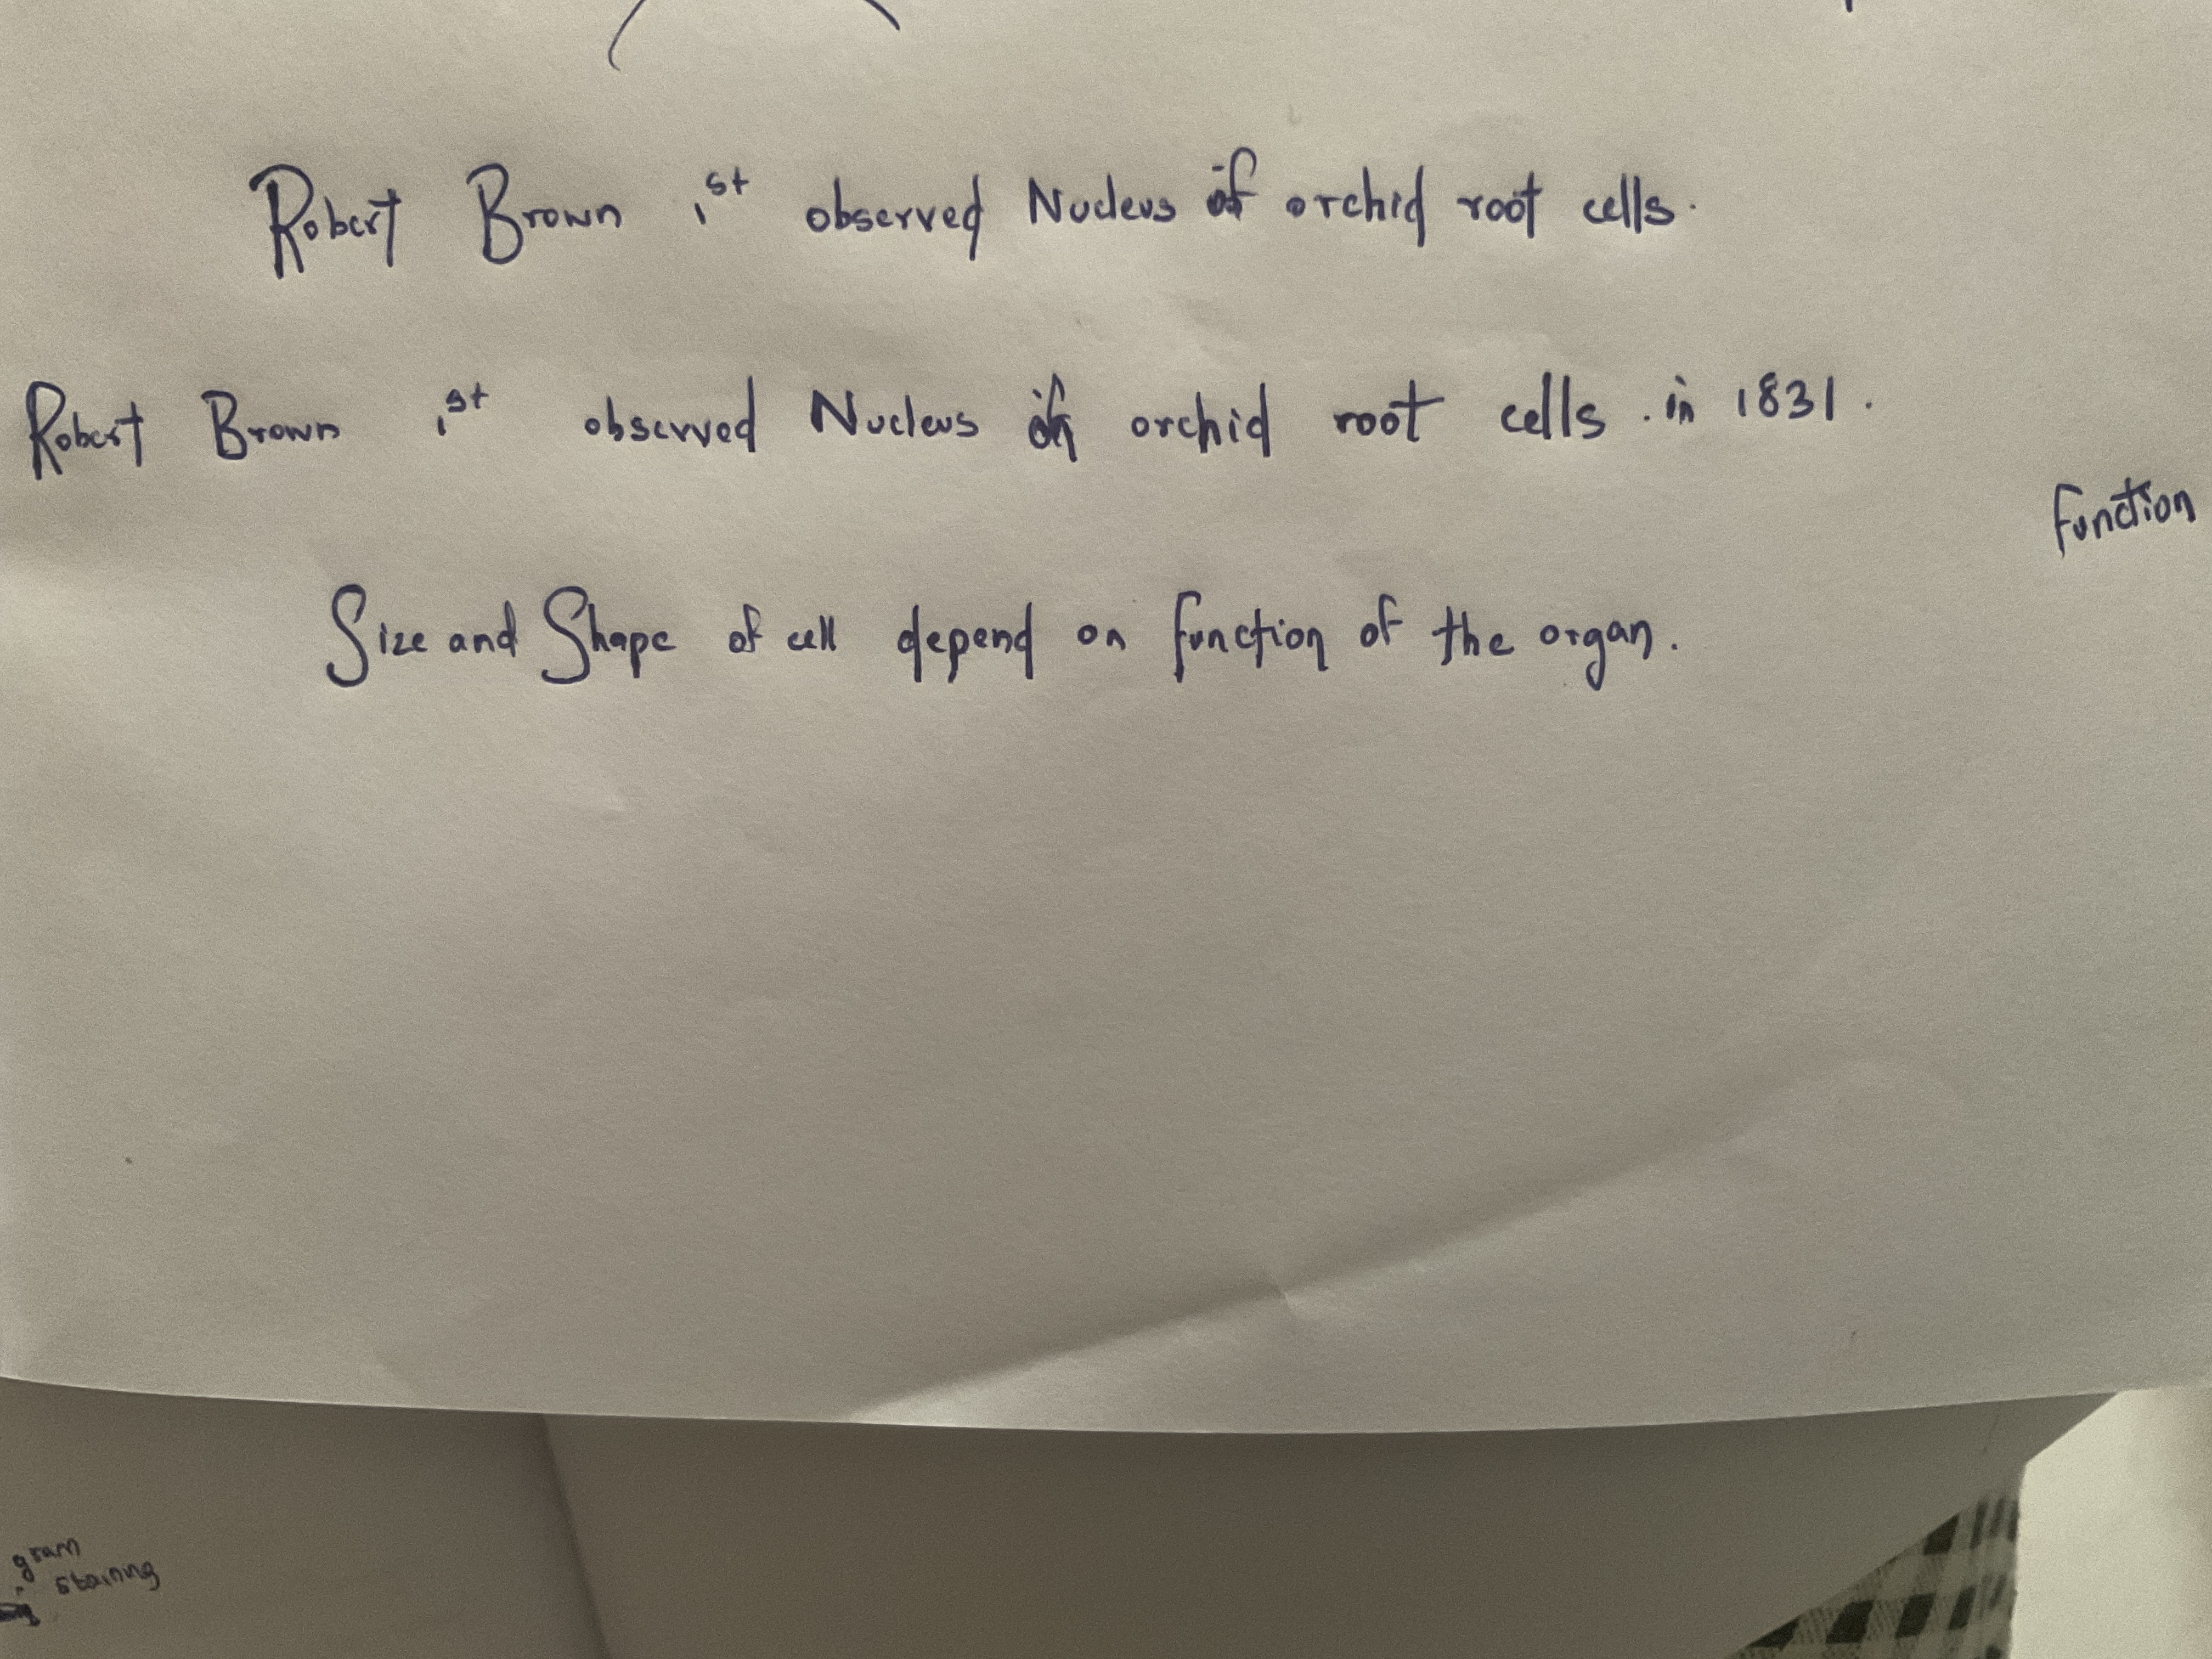 Robert Brown 1st observed Nucleus of orchid root cells.
Robert Brown 1st observed Nucleus in orchid root cells. in 1831.
function
Size and Shape of cell depend on function of the organ.
gram
staining